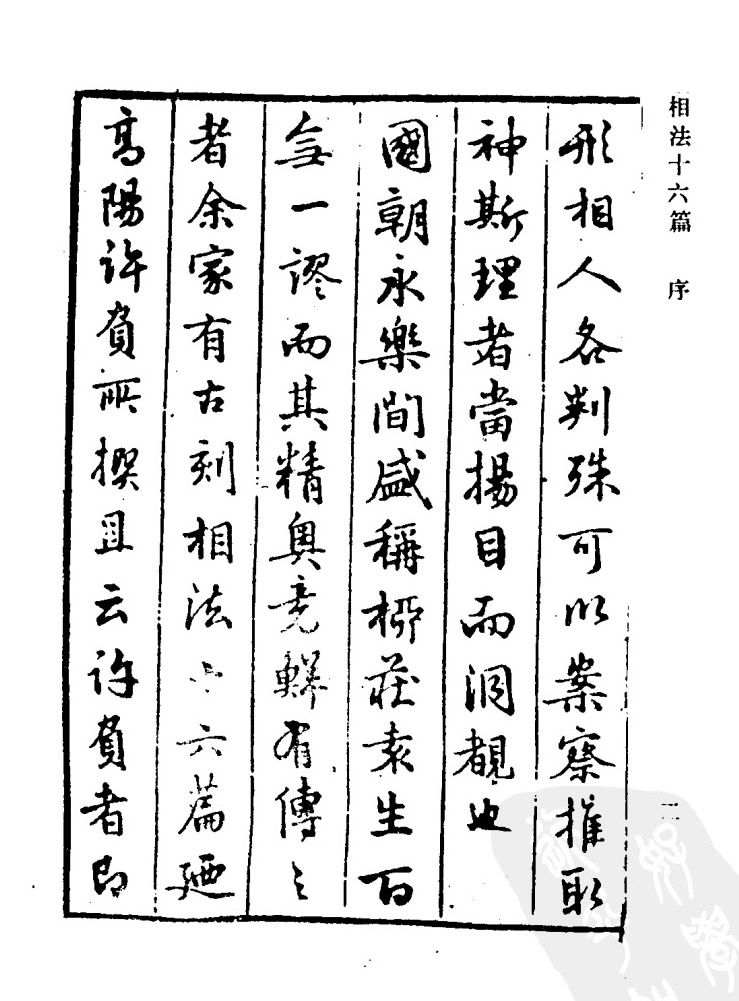 相法十六篇 序
二
形相人各判殊可以案察推取
神斯理者當揚目而洞覩也
國朝永樂間盛稱柳莊袁生百
無一謬而其精奧竟鮮有傳之
者余家有古刻相法十六篇廼
高陽許負所撰且云許負者即